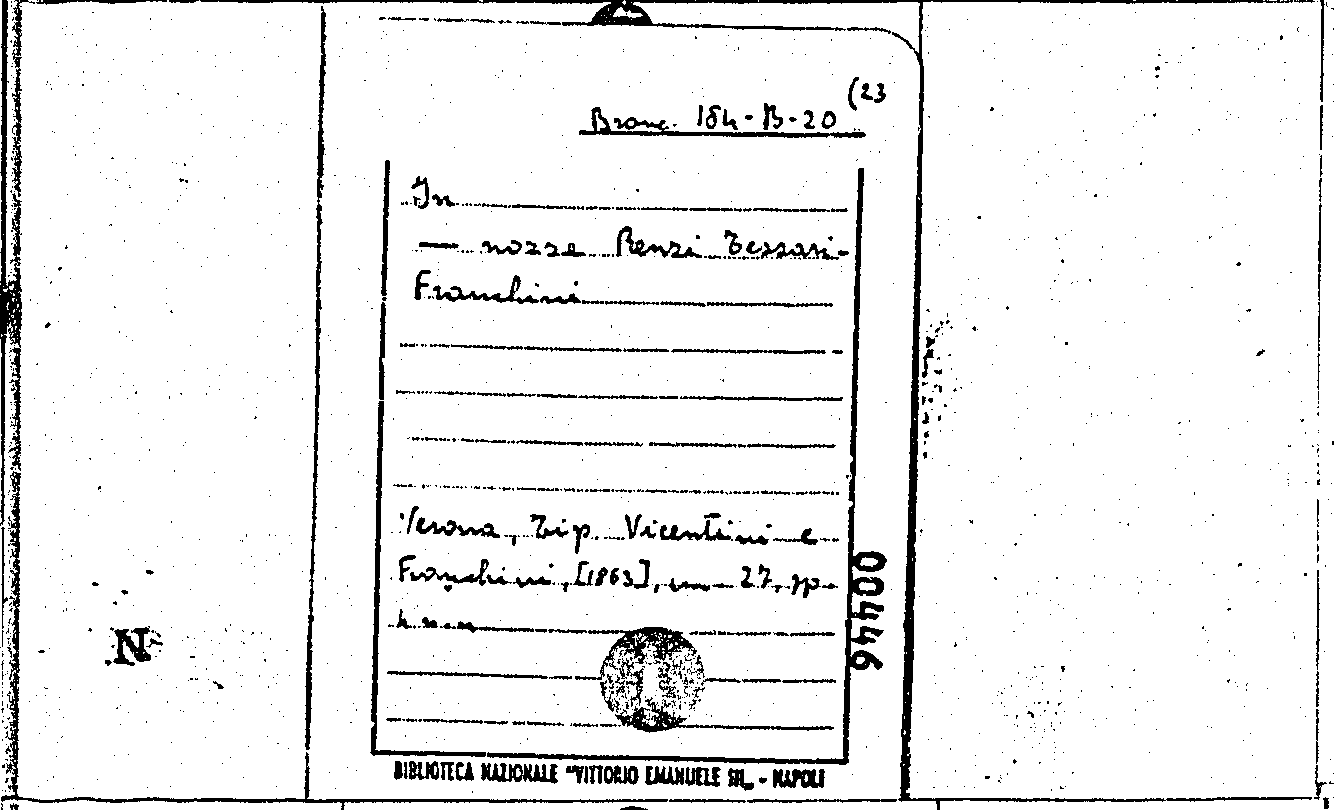 (23
Branc. 184-B-20
In
— nozze Renzi Tessari-
Franchini
Verona, Tip. Vicentini e
Franchini, [1863], cm 27, pp.
4 n.n.
00446
N
BIBLIOTECA NAZIONALE "VITTORIO EMANUELE III„ - NAPOLI